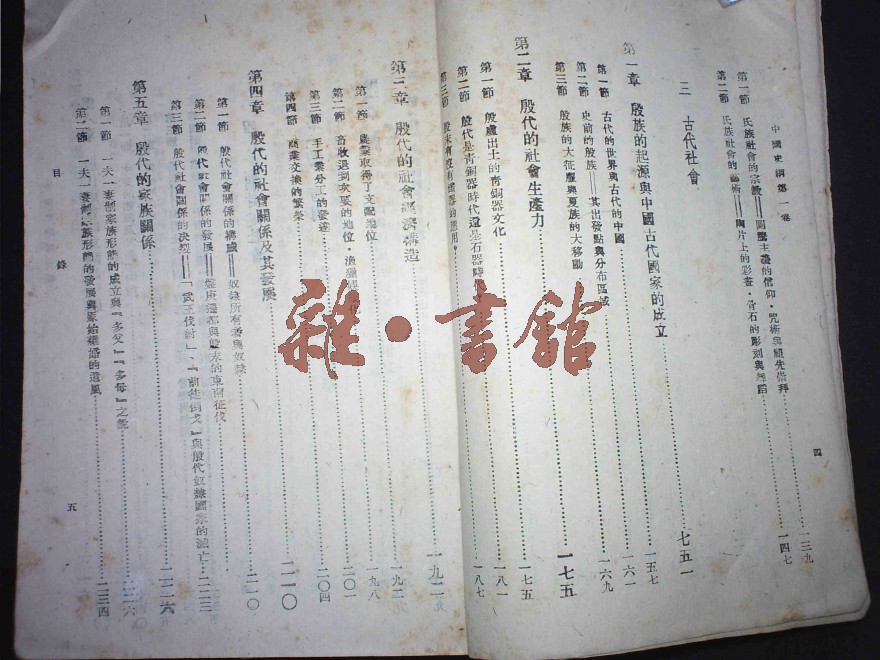 中國史綱第一卷
四
第一節 氏族社會的宗教——圖騰主義的信仰·咒術與祖先崇拜 一三九
第二節 氏族社會的藝術——陶片上的彩畫·骨石的彫刻與舞蹈 一四七
三 古代社會
第一章 殷族的起源與中國古代國家的成立
第一節 古代的世界與古代的中國 一五七
第二節 史前的殷族——其出發點與分布區域 一六一
第三節 殷族的大征服與夏族的大移動 一六九
第二章 殷代的社會生產力 一七五
第一節 殷虛出土的青銅器文化 一七五
第二節 殷代是青銅器時代還是石器時代 一八一
第三節 一八七
第三章 殷代的社會經濟構造 一九二
第一節 農業取得了支配地位 一九二
第二節 畜牧退到次要的地位 一九八
第三節 手工業分工的發達 二〇一
第四節 商業交換的繁榮 二〇四
第四章 殷代的社會關係及其發展 二一〇
第一節 殷代社會關係的構成——奴隸所有者與奴隸 二一〇
第二節 殷代社會關係的發展——盤庚遷都與殷末的東南征伐
第三節 殷代社會關係的決裂——「武王伐紂」、「前徒倒戈」與殷代奴隸國家的滅亡 二二三
第五章 殷代的家族關係 二二六
第一節 一夫一妻制家族形態的成立與「多父」「多母」之謎 二二六
第二節 一夫一妻制家族形態的發展與原始羣婚的遺風 二三四
目錄
五
雜·書館